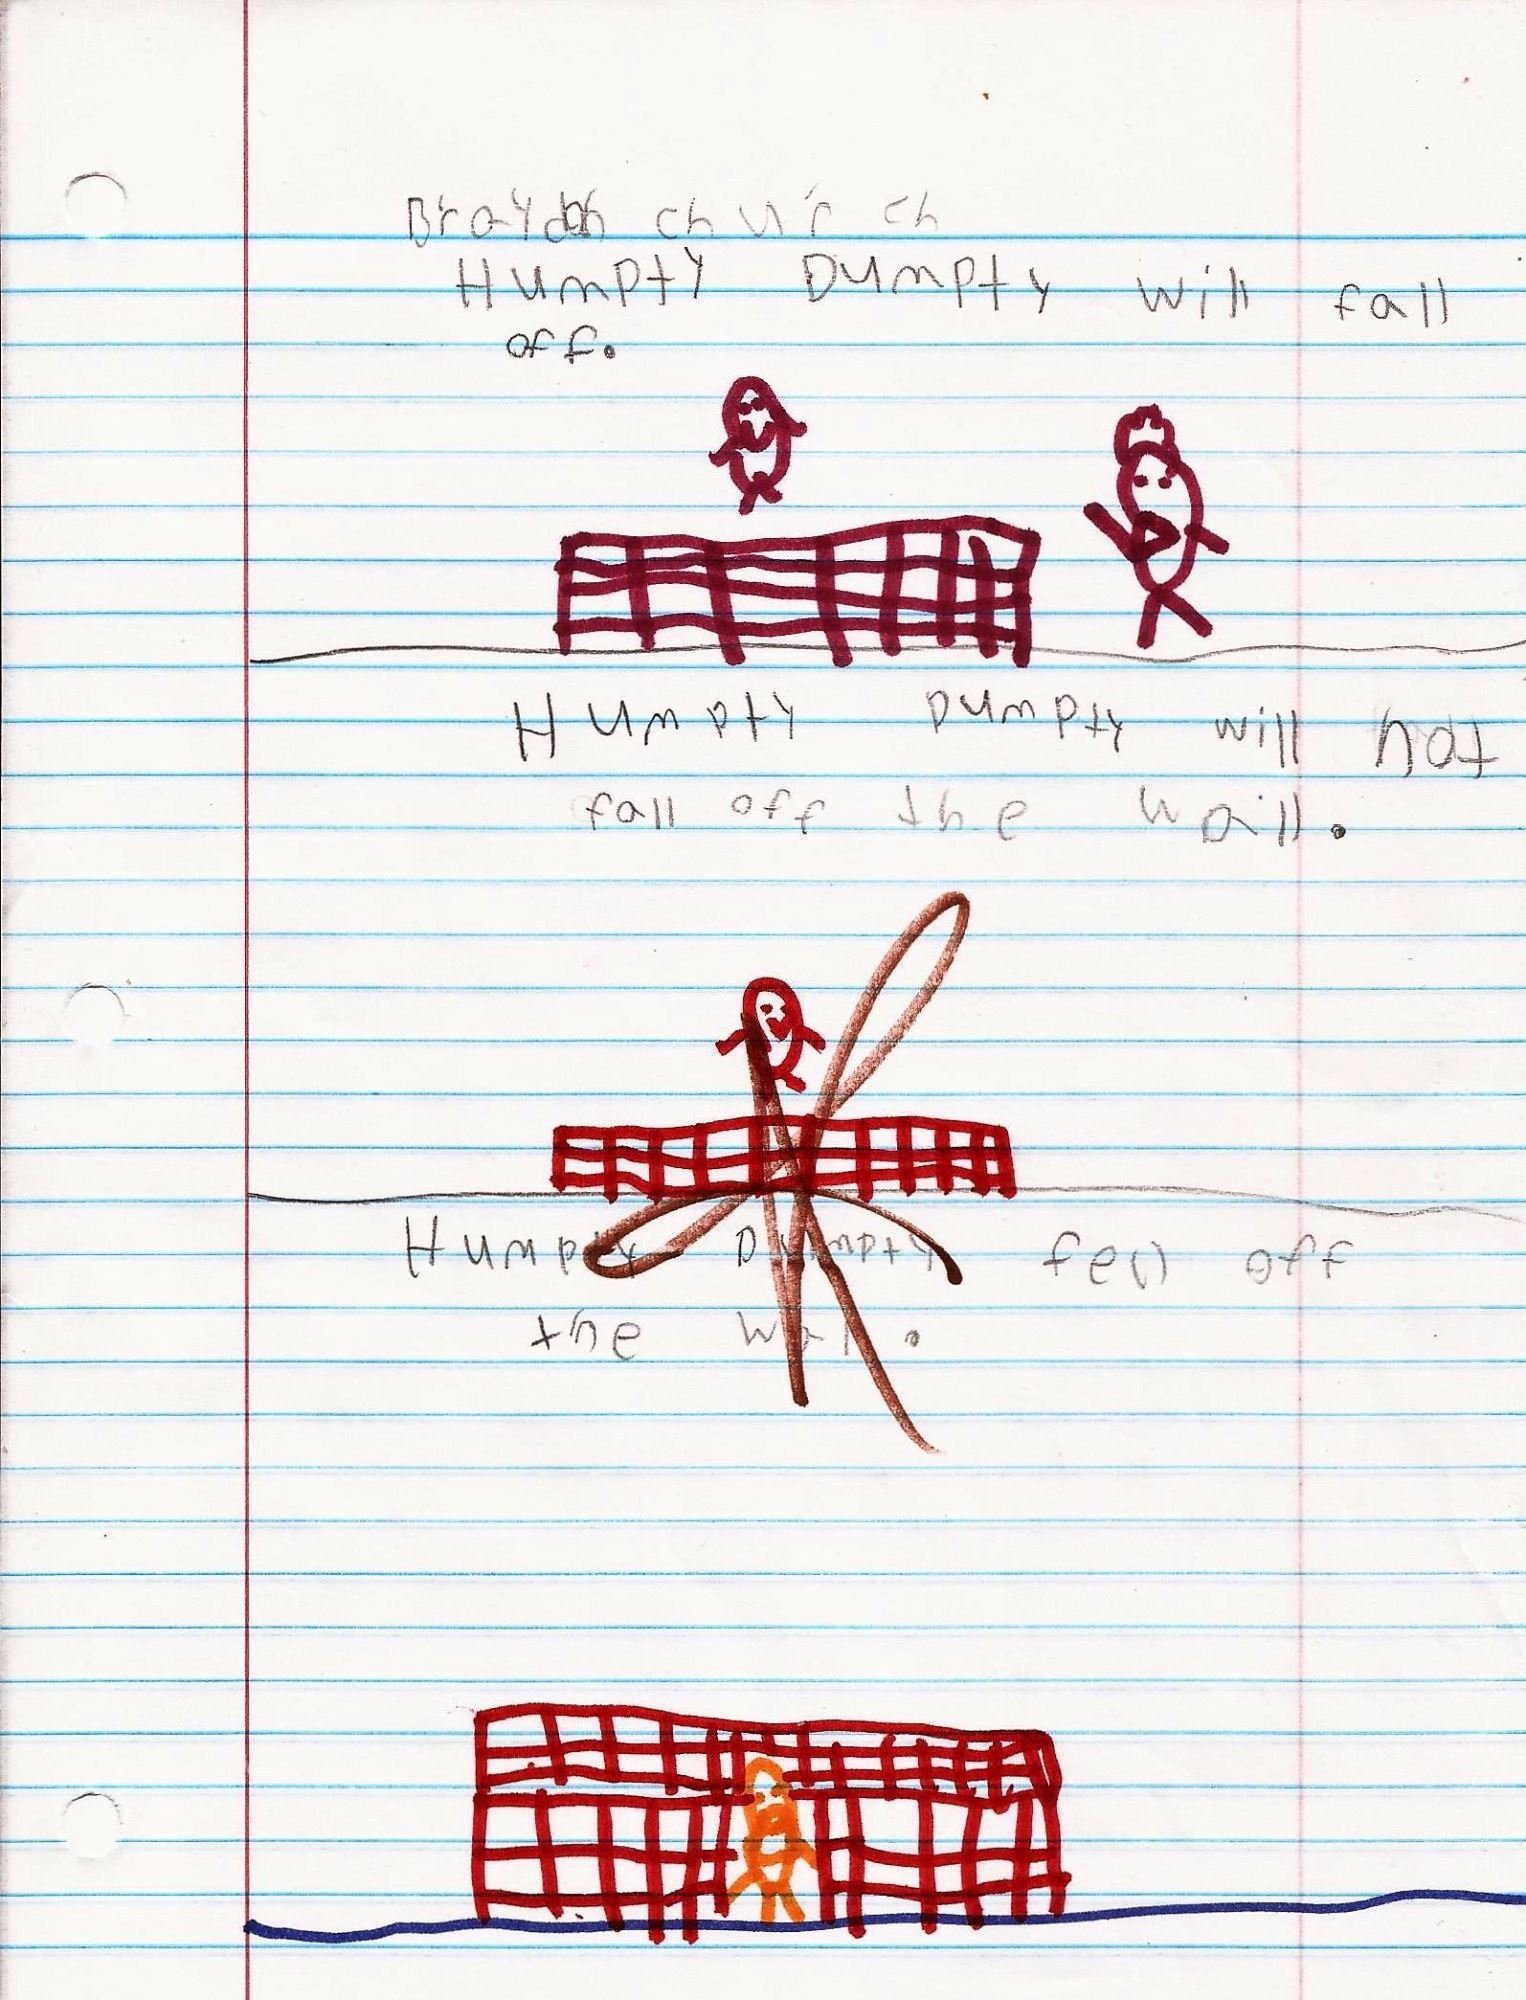 Braydon church
Humpty Dumpty will fall
off.
Humpty Dumpty will not
fall off the wall.
Humpty Dumpty fell off
the wall.